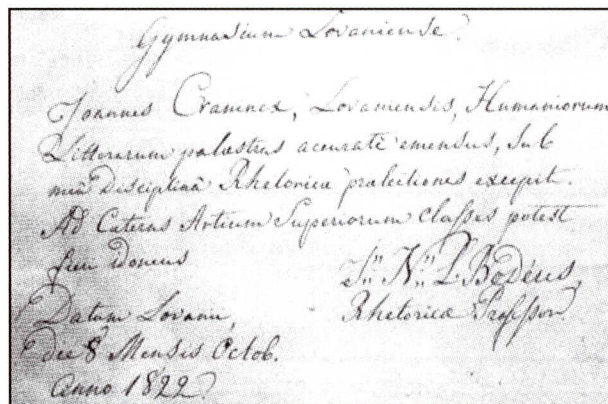 Gymnasium Lovaniense.
Joannes Craninex, Lovaniensis, Humaniorum
Litterarum palæstras accuratè emensus, sub
meâ Disciplinâ Rhetoricæ prælectiones excepit.
Ad Cæteras Artium Superiorum classes potest
fieri idoneus
Jn Ns L. Bodéus,
Rhetoricæ Professor.
Datum Lovanii,
die 8 Mensis Octob.
Anno 1822